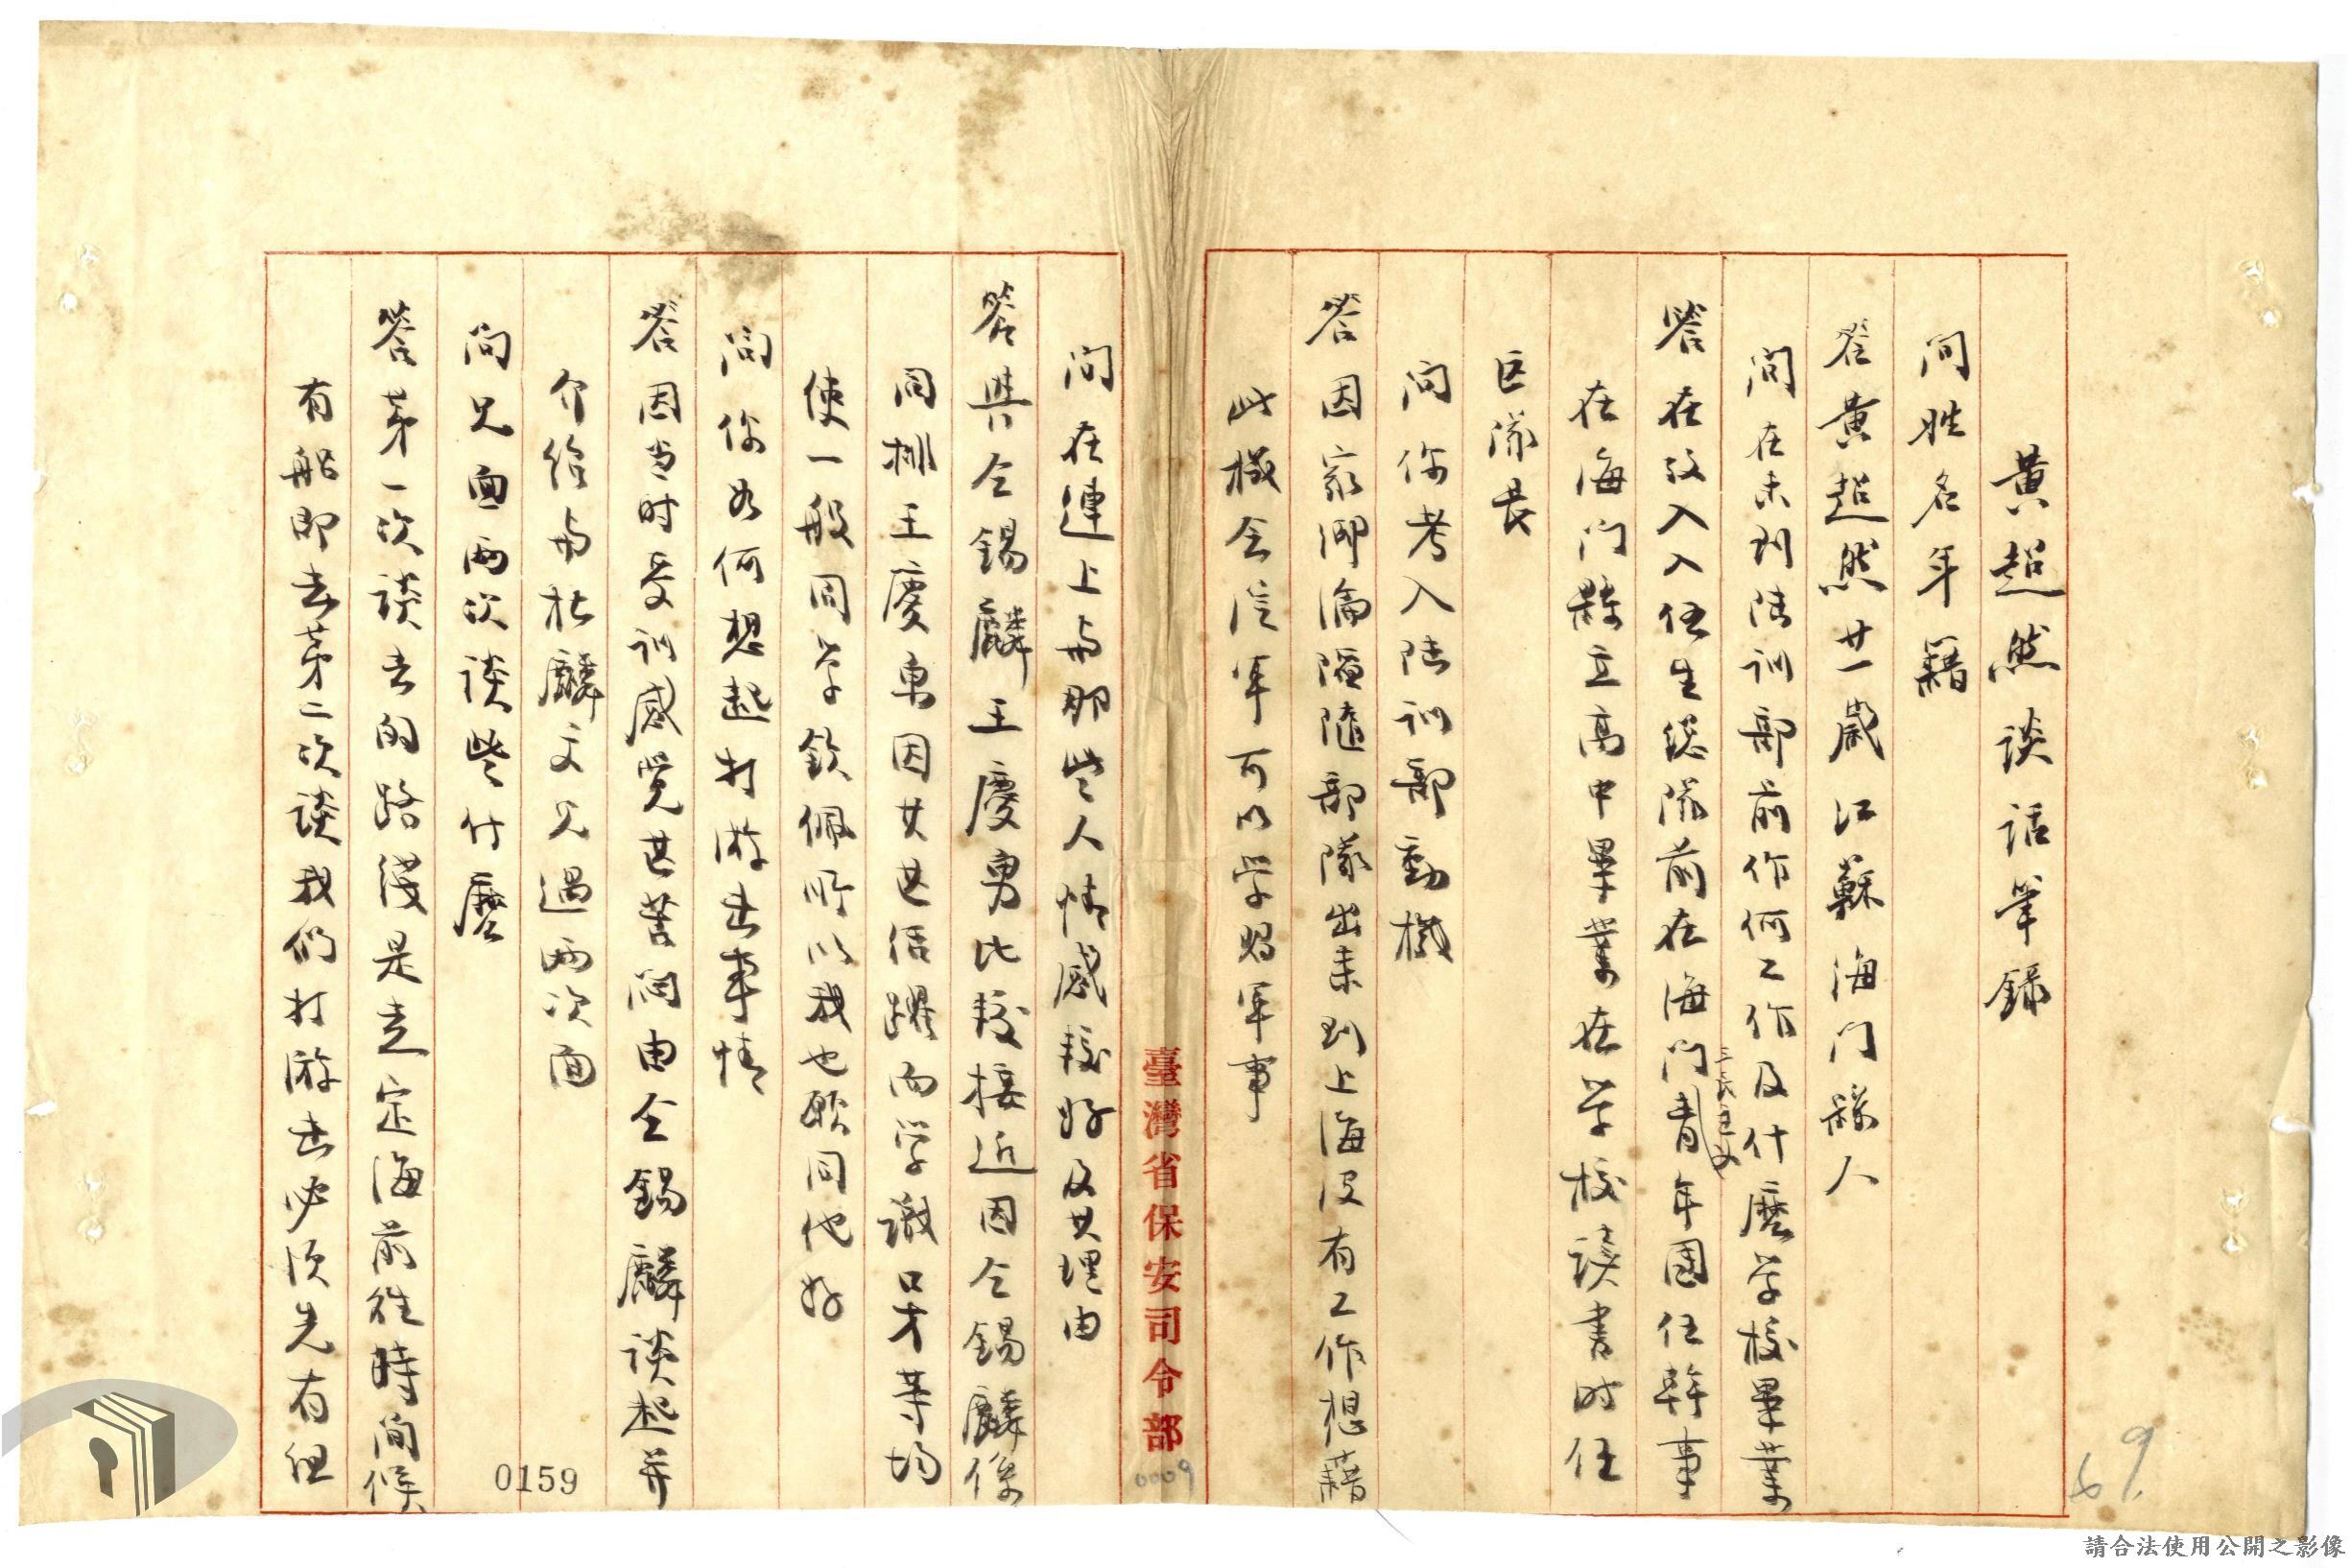 黃超然談話筆錄
問姓名年籍
答黃超然廿一歲江蘇海门縣人
問在未到陸訓部前作何工作及什麼学校畢業
答在致入入伍生總隊前在海門三民主义青年團任幹事
在海门縣立高中畢業在学校讀書时任
区隊長
问你考入陸训部動機
答因家鄉淪陷隨部隊出来到上海没有工作想藉
此機会從軍可以学習軍事
臺灣省保安司令部
0009
问在連上与那些人情感較好及其理由
答與仝錫麟王慶勇比較接近因仝錫麟係
同排王慶勇因其甚活躍而学識口才等均
使一般同学欽佩所以我也願同他好
問你为何想起打游击事情
答因当时受训感覚甚苦闷由仝錫麟談起并
介绍与杜麟文見過兩次面
问見面兩次談些什麼
答第一次談去的路綫是走定海前往時间候
有船即去第二次談我們打游击必须先有组
0159
69
請合法使用公開之影像